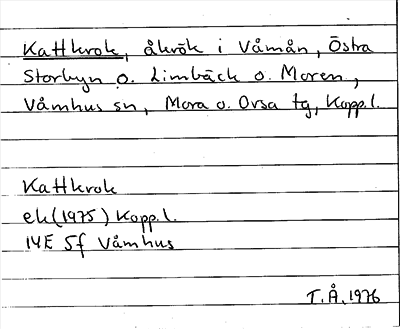 Kattkrok, åkrök i Våmån, Östra
Storbyn o. Limbäck o. Moren,
Våmhus sn, Mora o. Orsa tg, Kopp.l.
Kattkrok
ek (1975) Kopp.l.
14E 5f Våmhus
T.Å. 1976